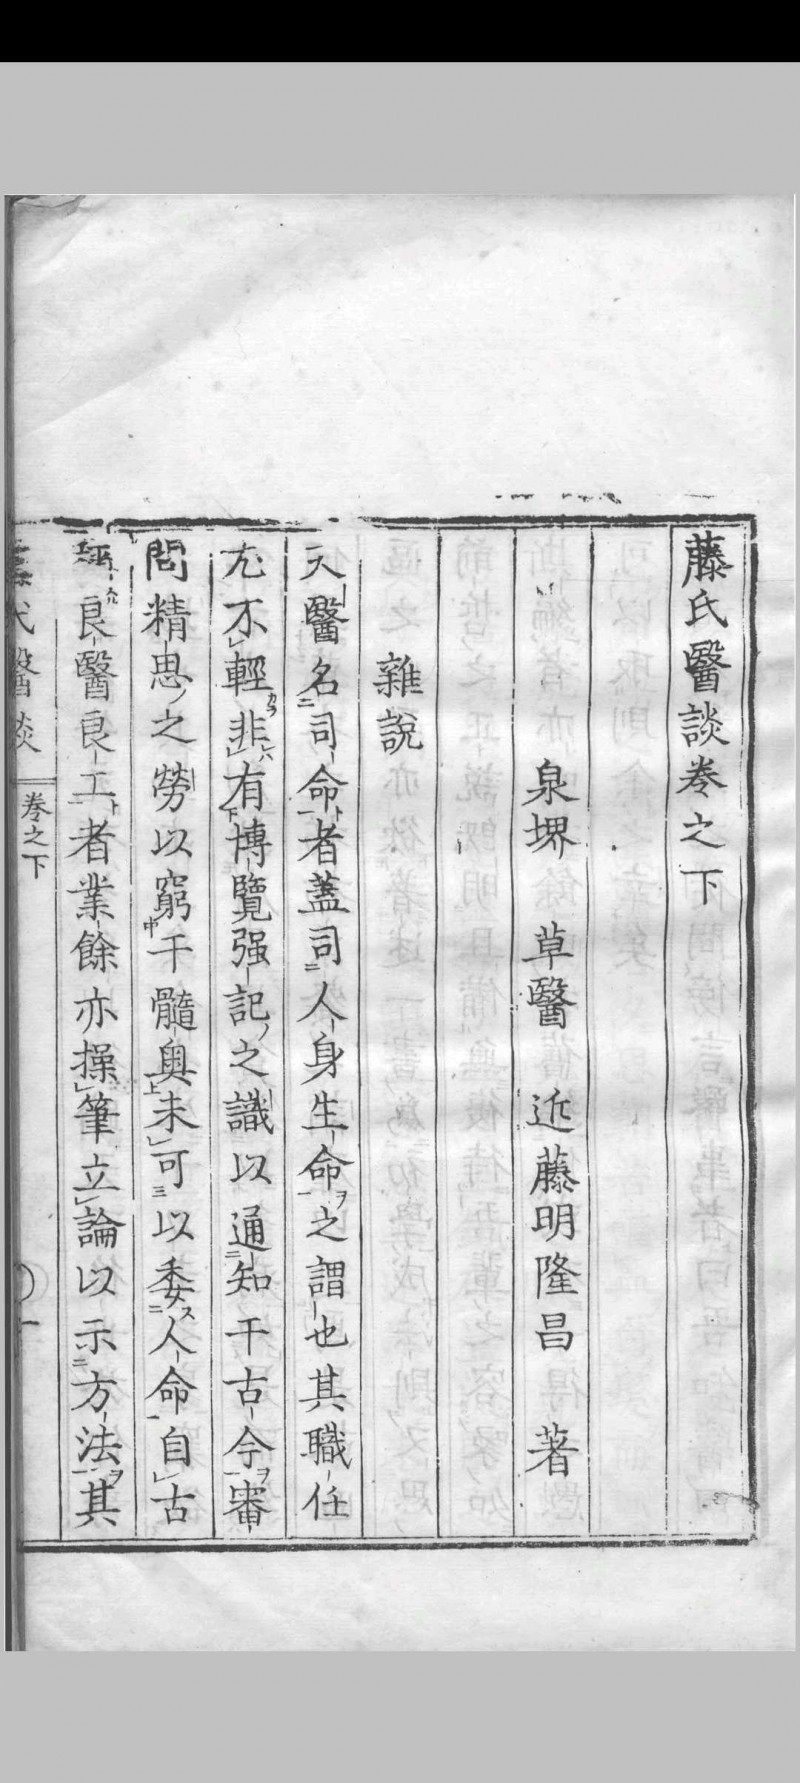 藤氏醫談卷之下
泉堺 草醫 近藤明隆昌 著
雜說
夫醫名司命者蓋司人身生命之謂也其職任
尤不輕非有博覽强記之識以通知于古今審
問精思之勞以窮于髓奧未可以委人命自古
稱良醫良工者業餘亦操筆立論以示方法其
氏醫談
卷之下
一